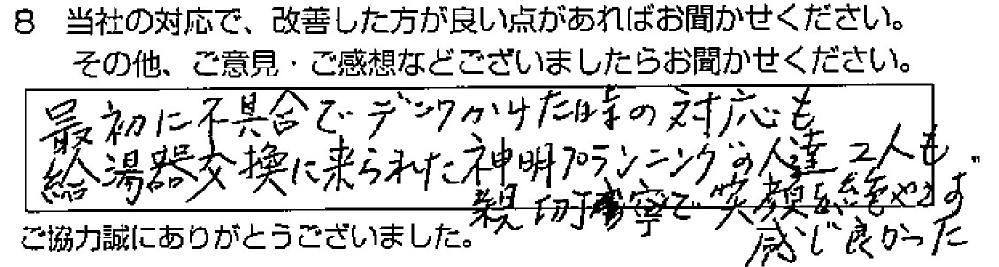 8 当社の対応で、改善した方が良い点があればお聞かせください。
その他、ご意見・ご感想などございましたらお聞かせください。
最初に不具合でデンワかけた時の対応も
給湯器交換に来られた神明プランニングの人達 2人も
親切丁寧で 笑顔を絶やさず
感じ良かった
ご協力誠にありがとうございました。